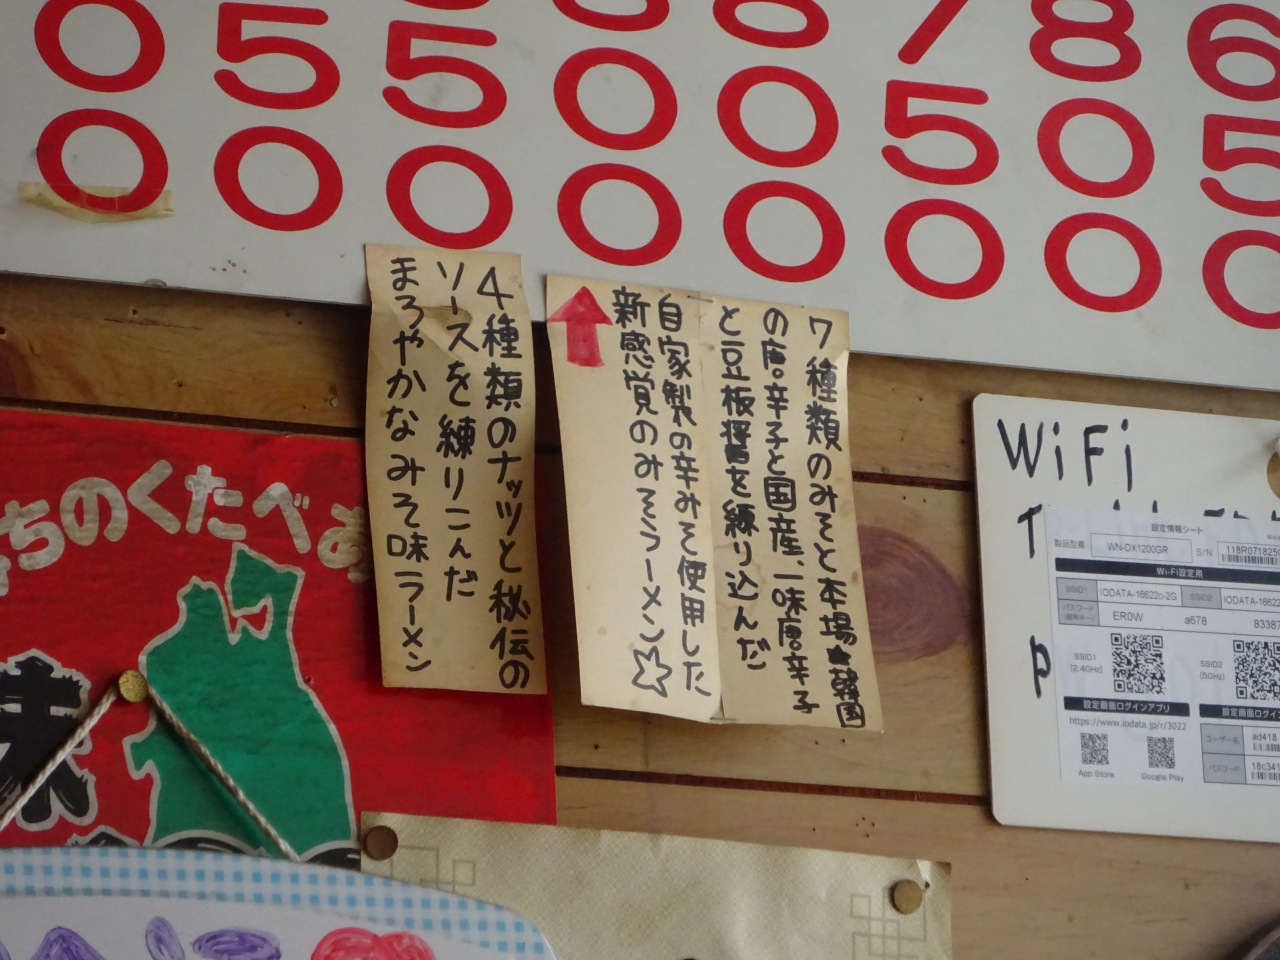 0 5 5 0 0 5 0 5
0 0 0 0 0 0 0 0
4種類のナッツと秘伝の
ソースを練りこんだ
まろやかなみそ味ラーメン
7種類のみそと本場★韓国
の唐辛子と国産、一味唐辛子
と豆板醤を練り込んだ
自家製の辛みそ使用した
新感覚のみそらーメン☆
ちのくたべ
味
WiFi
設定情報シート
製品型番 WN-DX1200GR S/N 118R071825
Wi-Fi設定用
SSID1 IODATA-16622c-2G SSID2 IODATA-1662
パスワード ER0W a678 8338
SSID1 [2.4GHz] SSID2 [5GHz]
設定画面ログインアプリ 設定画面ログイン
https://www.iodata.jp/r/3022
ユーザー名 ad418
パスワード 18c341
App Store Google Play